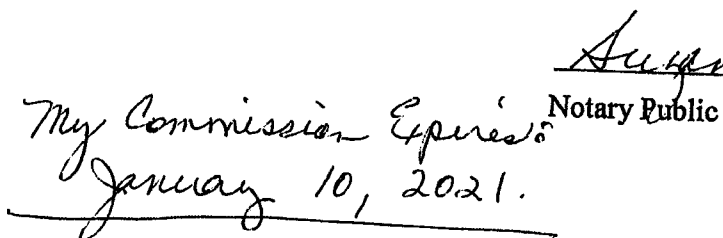 Notary Public
My Commission Expires:
January 10, 2021.